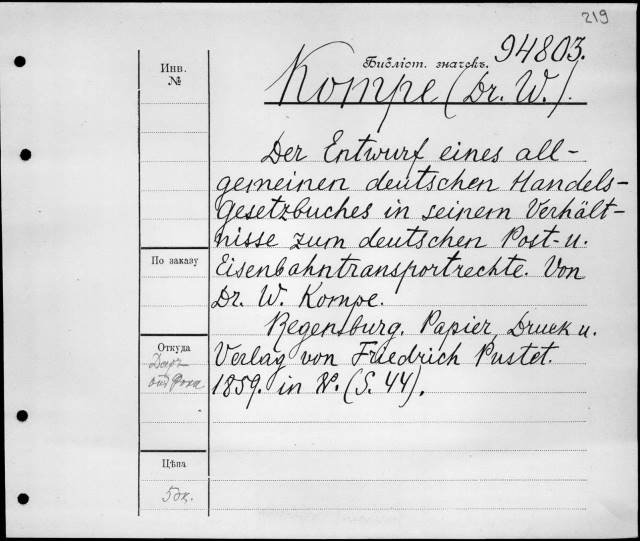 219
Библіот. значекъ. 94803.
Инв.
№
Kompe (Dr. W.).
Der Entwurf eines all-
gemeinen deutschen Handels-
Gesetzbuches in seinem Verhält-
nisse zum deutschen Post- u.
По заказу
Eisenbahntransportrechte. Von
Dr. W. Kompe.
Regensburg. Papier, Druck u.
Откуда
Verlag von Friedrich Pustet.
Даръ
1859. in 8º. (S. 44).
Цѣна